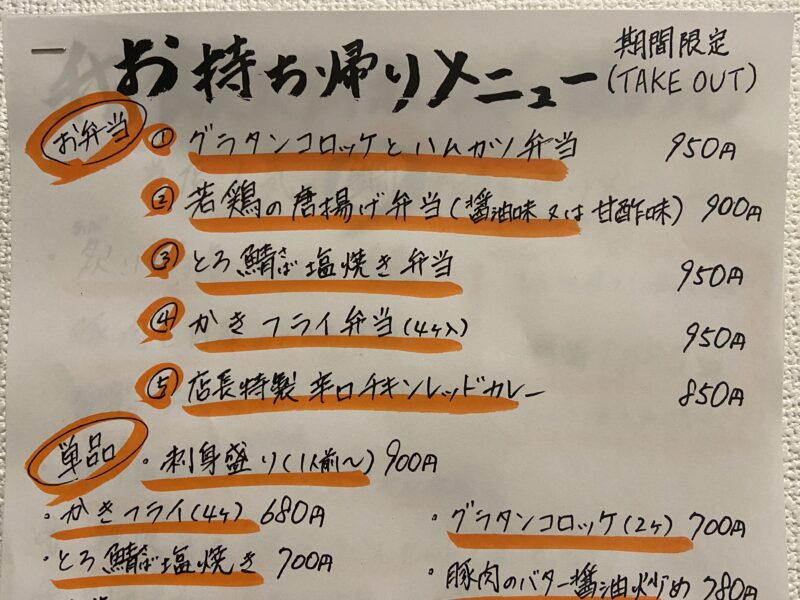 お持ち帰りメニュー
期間限定
(TAKE OUT)
お弁当
① グラタンコロッケとハムカツ弁当 950円
② 若鶏の唐揚げ弁当(醤油味又は甘酢味) 900円
③ とろ鯖さば塩焼き弁当 950円
④ かきフライ弁当(4ヶ入) 950円
⑤ 店長特製 辛口チキンレッドカレー 850円
単品
・刺身盛り(1人前〜) 900円
・かきフライ(4ヶ) 680円
・グラタンコロッケ(2ヶ) 700円
・とろ鯖さば塩焼き 700円
・豚肉のバター醤油炒め 780円